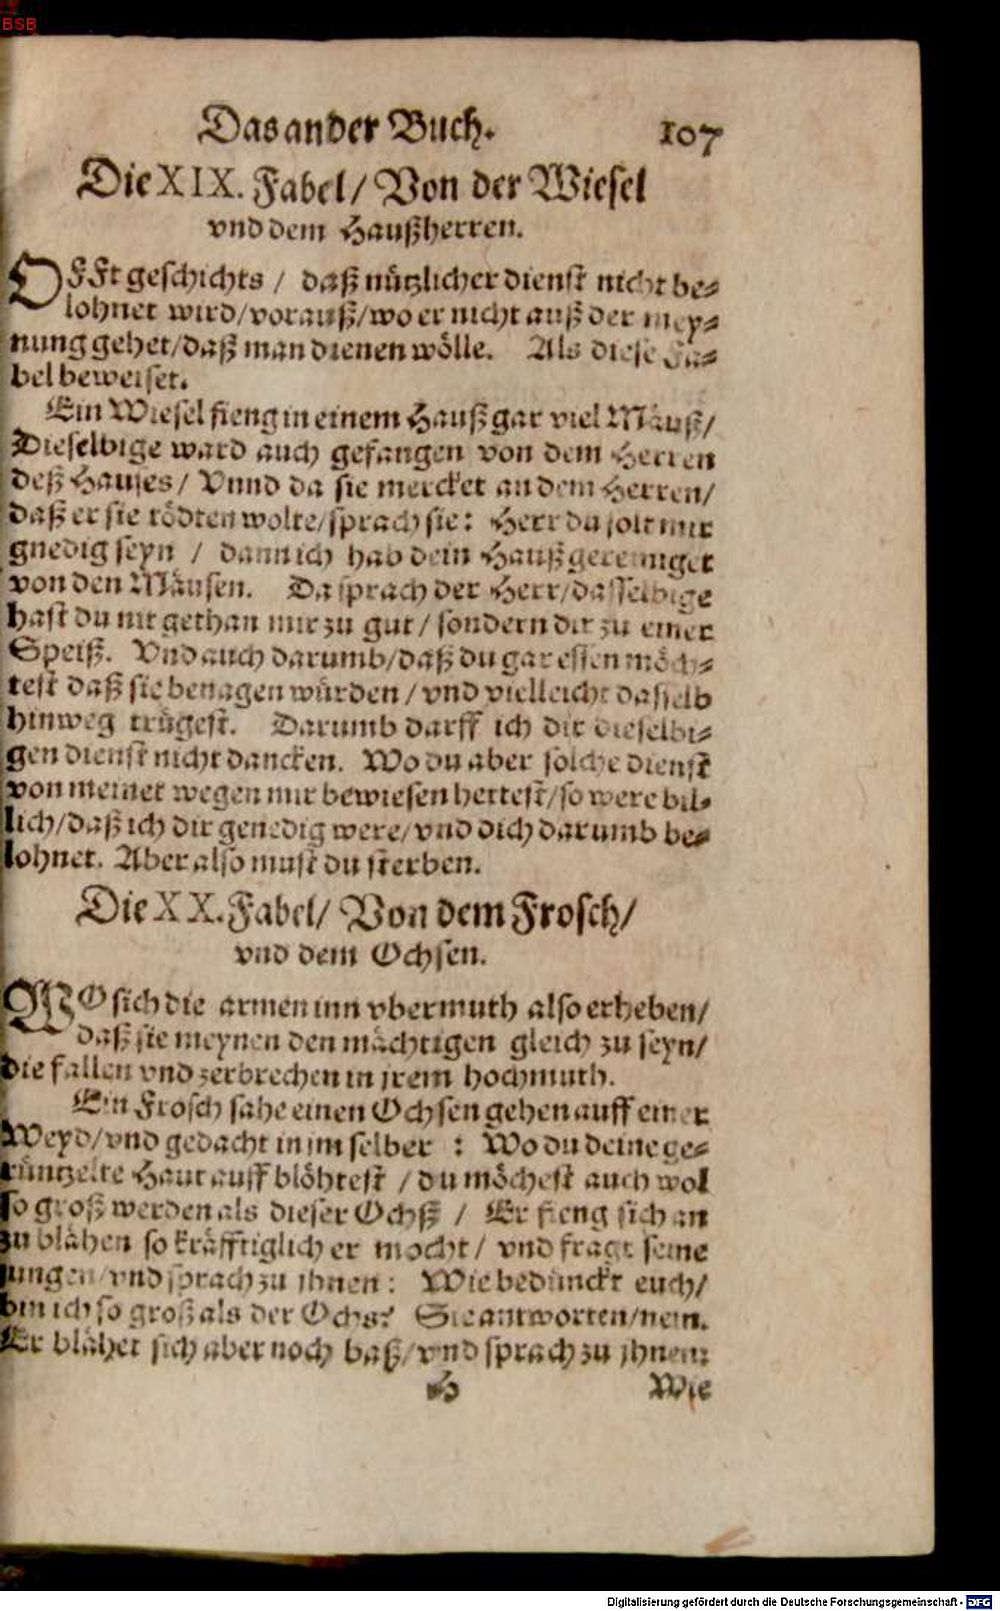 BSB
Das ander Buch. 107
Die XIX. Fabel/ Von der Wiesel
vnd dem Haußherren.
OFFt geschichts / daß nützlicher dienst nicht be-
lohnet wird/vorauß/wo er nicht auß der mey-
nung gehet/daß man dienen wölle. Als diese Fa-
bel beweiset.
Ein Wiesel fieng in einem Hauß gar viel Mäuß/
Dieselbige ward auch gefangen von dem Herren
deß Hauses/ Vnnd da sie mercket an dem Herren/
daß er sie tödten wolte/sprach sie: Herr du solt mir
gnedig seyn / dann ich hab dein Hauß gereiniget
von den Mäusen. Da sprach der Herr/dasselbige
hast du nit gethan mir zu gut/ sondern dir zu einer
Speiß. Vnd auch darumb/daß du gar essen möch-
test daß sie benagen würden/vnd vielleicht dasselb
hinweg trügest. Darumb darff ich dir dieselbi-
gen dienst nicht dancken. Wo du aber solche dienst
von meinet wegen mir bewiesen hettest/so were bil-
lich/daß ich dir genedig were/vnd dich darumb be-
lohnet. Aber also must du sterben.
Die XX. Fabel/ Von dem Frosch/
vnd dem Ochsen.
WO sich die armen inn vbermuth also erheben/
daß sie meynen den mächtigen gleich zu seyn/
die fallen vnd zerbrechen in jrem hochmuth.
Ein Frosch sahe einen Ochsen gehen auff einer
Weyd/vnd gedacht in im selber : Wo du deine ge-
rüntzelte Haut auff blöhtest /du möchest auch wol
so groß werden als dieser Ochß / Er fieng sich an
zu blähen so kräfftiglich er mocht/ vnd fragt seine
jungen/vnd sprach zu ihnen: Wie bedünckt euch/
bin ich so groß als der Ochs? Sie antworten/nein.
Er blähet sich aber noch baß/vnd sprach zu jhnen:
H Wie
Digitalisierung gefördert durch die Deutsche Forschungsgemeinschaft - DFG